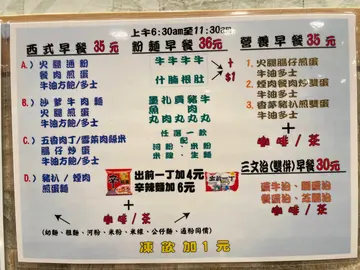 上午6:30am至11:30am
西式早餐 35元
A.) 火腿通粉
餐肉煎蛋
牛油方飽/多士
B.) 沙爹牛肉麵
火腿煎蛋
牛油方飽/多士
C.) 五香肉丁/雪菜肉絲米
腸仔炒蛋
牛油方飽/多士
D.) 豬扒/煙肉
煎蛋麵
+
咖啡/茶
粉麵早餐 36元
牛牛牛牛
什腩根肚
+
$1
墨扎貝豬牛
魚肉
丸肉丸丸丸
任選一款
配
河粉·米粉
米線·生麵
出前一丁加4元
辛辣麵加6元
+
咖啡/茶
營養早餐 35元
1. 火腿腸仔煎蛋
牛油多士
2. 煙肉餐肉炒蛋
牛油多士
3. 香茅豬扒煎雙蛋
牛油多士
+
咖啡/茶
三文治(雙併)早餐30元
+
咖啡/茶
(幼麵·粗麵·河粉·米粉·米線·公仔麵·通粉同價)
凍飲加1元